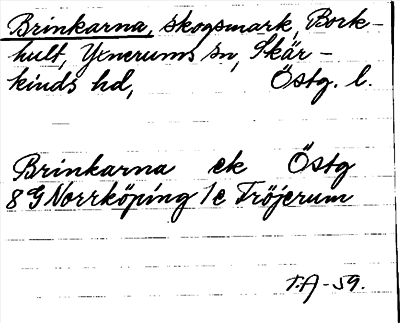 Brinkarna, skogsmark, Bork-
hult, Yxnerums sn, Skär-
kinds hd, Östg. l.
Brinkarna ek Östg
8 G Norrköping 1c Fröjerum
T.A-59.